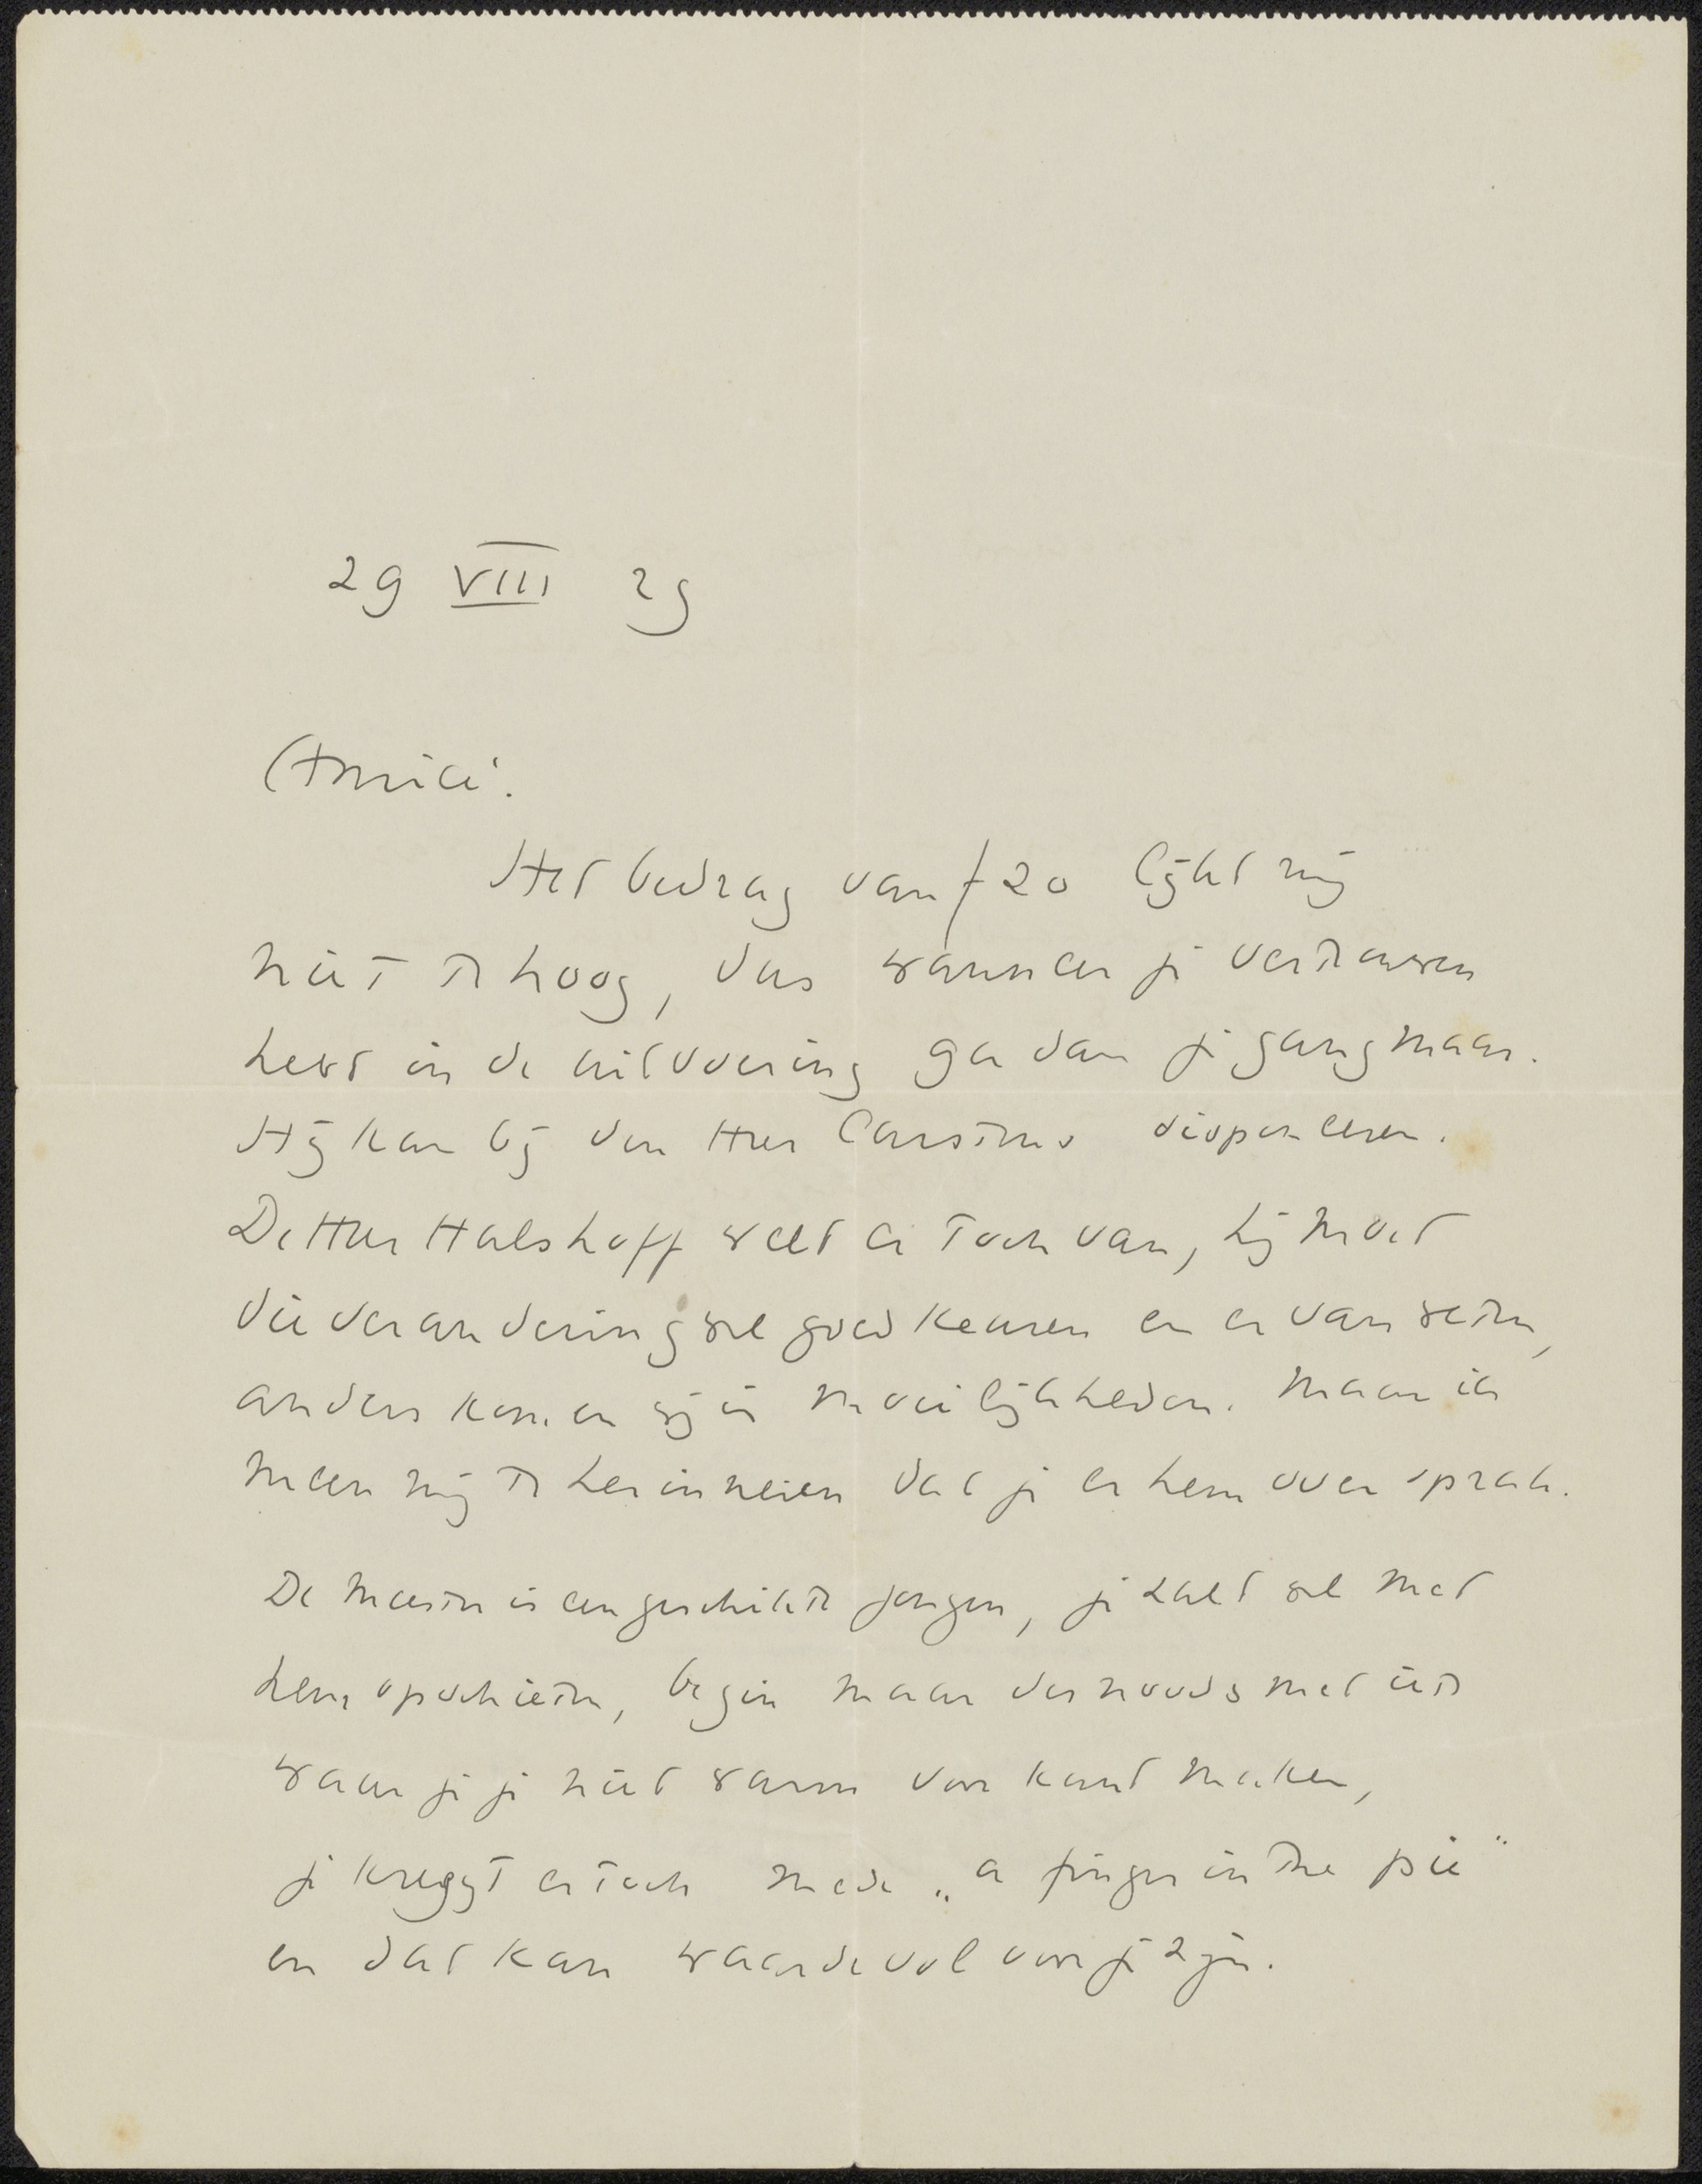 29 VIII 29
Amici.
Het bedrag van f 20 lijkt mij
niet te hoog, dus wanneer je vertrouwen
hebt in de uitvoering ga dan je gang maar.
Hij kan bij den Heer Carstens disponeeren.
De Heer Hulshoff weet er toch van, hij moet
die verandering wel goedkeuren en er van weten,
anders komen wij in moeilijkheden. Maar ik
meen mij te herinneren dat je er hem over sprak.
De Meester is een geschikte jongen, je zult wel met
hem opschieten, begin maar desnoods met iets
waar je je niet warm voor kunt maken,
je krijgt er toch mede „a finger in the pie"
en dat kan waardevol voor je zijn.